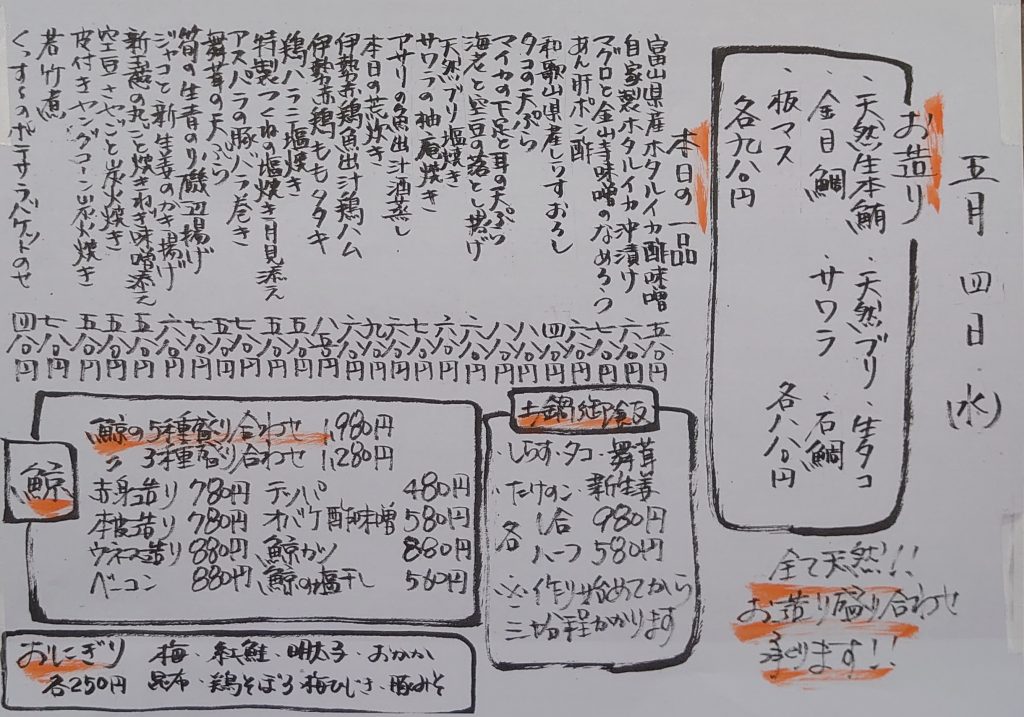 五月四日(水)
お造り
・天然生本鮪 ・天然ブリ ・生タコ
・金目鯛 ・サワラ ・石鯛
各八八〇円
・板マス
各九八〇円
全て天然!!
お造り盛り合わせ
承ります!!
本日の一品
富山県産ホタルイカ酢味噌 五八〇円
自家製ホタルイカ沖漬け 六八〇円
マグロと金山寺味噌のなめろう 七八〇円
あん肝ポン酢 六八〇円
和歌山県産しらすおろし 四八〇円
タコの天ぷら 八八〇円
マイカの下足と耳の天ぷら 八八〇円
海老と空豆の落とし揚げ 六八〇円
天然ブリ塩焼き 六八〇円
サワラの柚庵焼き 七八〇円
アサリの魚出汁酒蒸し 六八〇円
本日の荒炊き 九八〇円
伊勢赤鶏魚出汁鶏ハム 六八〇円
伊勢赤鶏ももタタキ 八五〇円
鶏ハラミ塩焼き 五八〇円
特製つくねの塩焼き月見添え 五八〇円
アスパラの豚バラ巻き 七八〇円
舞茸の天ぷら 五八〇円
筍の生青のり磯辺揚げ 七八〇円
ジャコと新生姜のかき揚げ 六八〇円
新玉葱の丸ごと炊きねぎ味噌添え 五八〇円
空豆さやごと炭火焼き 五八〇円
皮付きヤングコーン炭火焼き 五八〇円
若竹煮 七八〇円
のポテサラバゲットのせ 四八〇円
土鍋御飯
・しらす・タコ・舞茸
・たけのこ・新生姜
各 1合 980円
ハーフ 580円
※作り始めてから
三十分程かかります
鯨
鯨の5種盛り合わせ 1,980円
〃 3種盛り合わせ 1,280円
赤身造り 780円 テッパ 480円
本皮造り 780円 オバケ酢味噌 580円
ウネス造り 880円 鯨カツ 880円
ベーコン 880円 鯨の塩干し 560円
おにぎり 梅・紅鮭・明太子・おかか
各250円 昆布・鶏そぼろ・梅ひじき・豚みそ